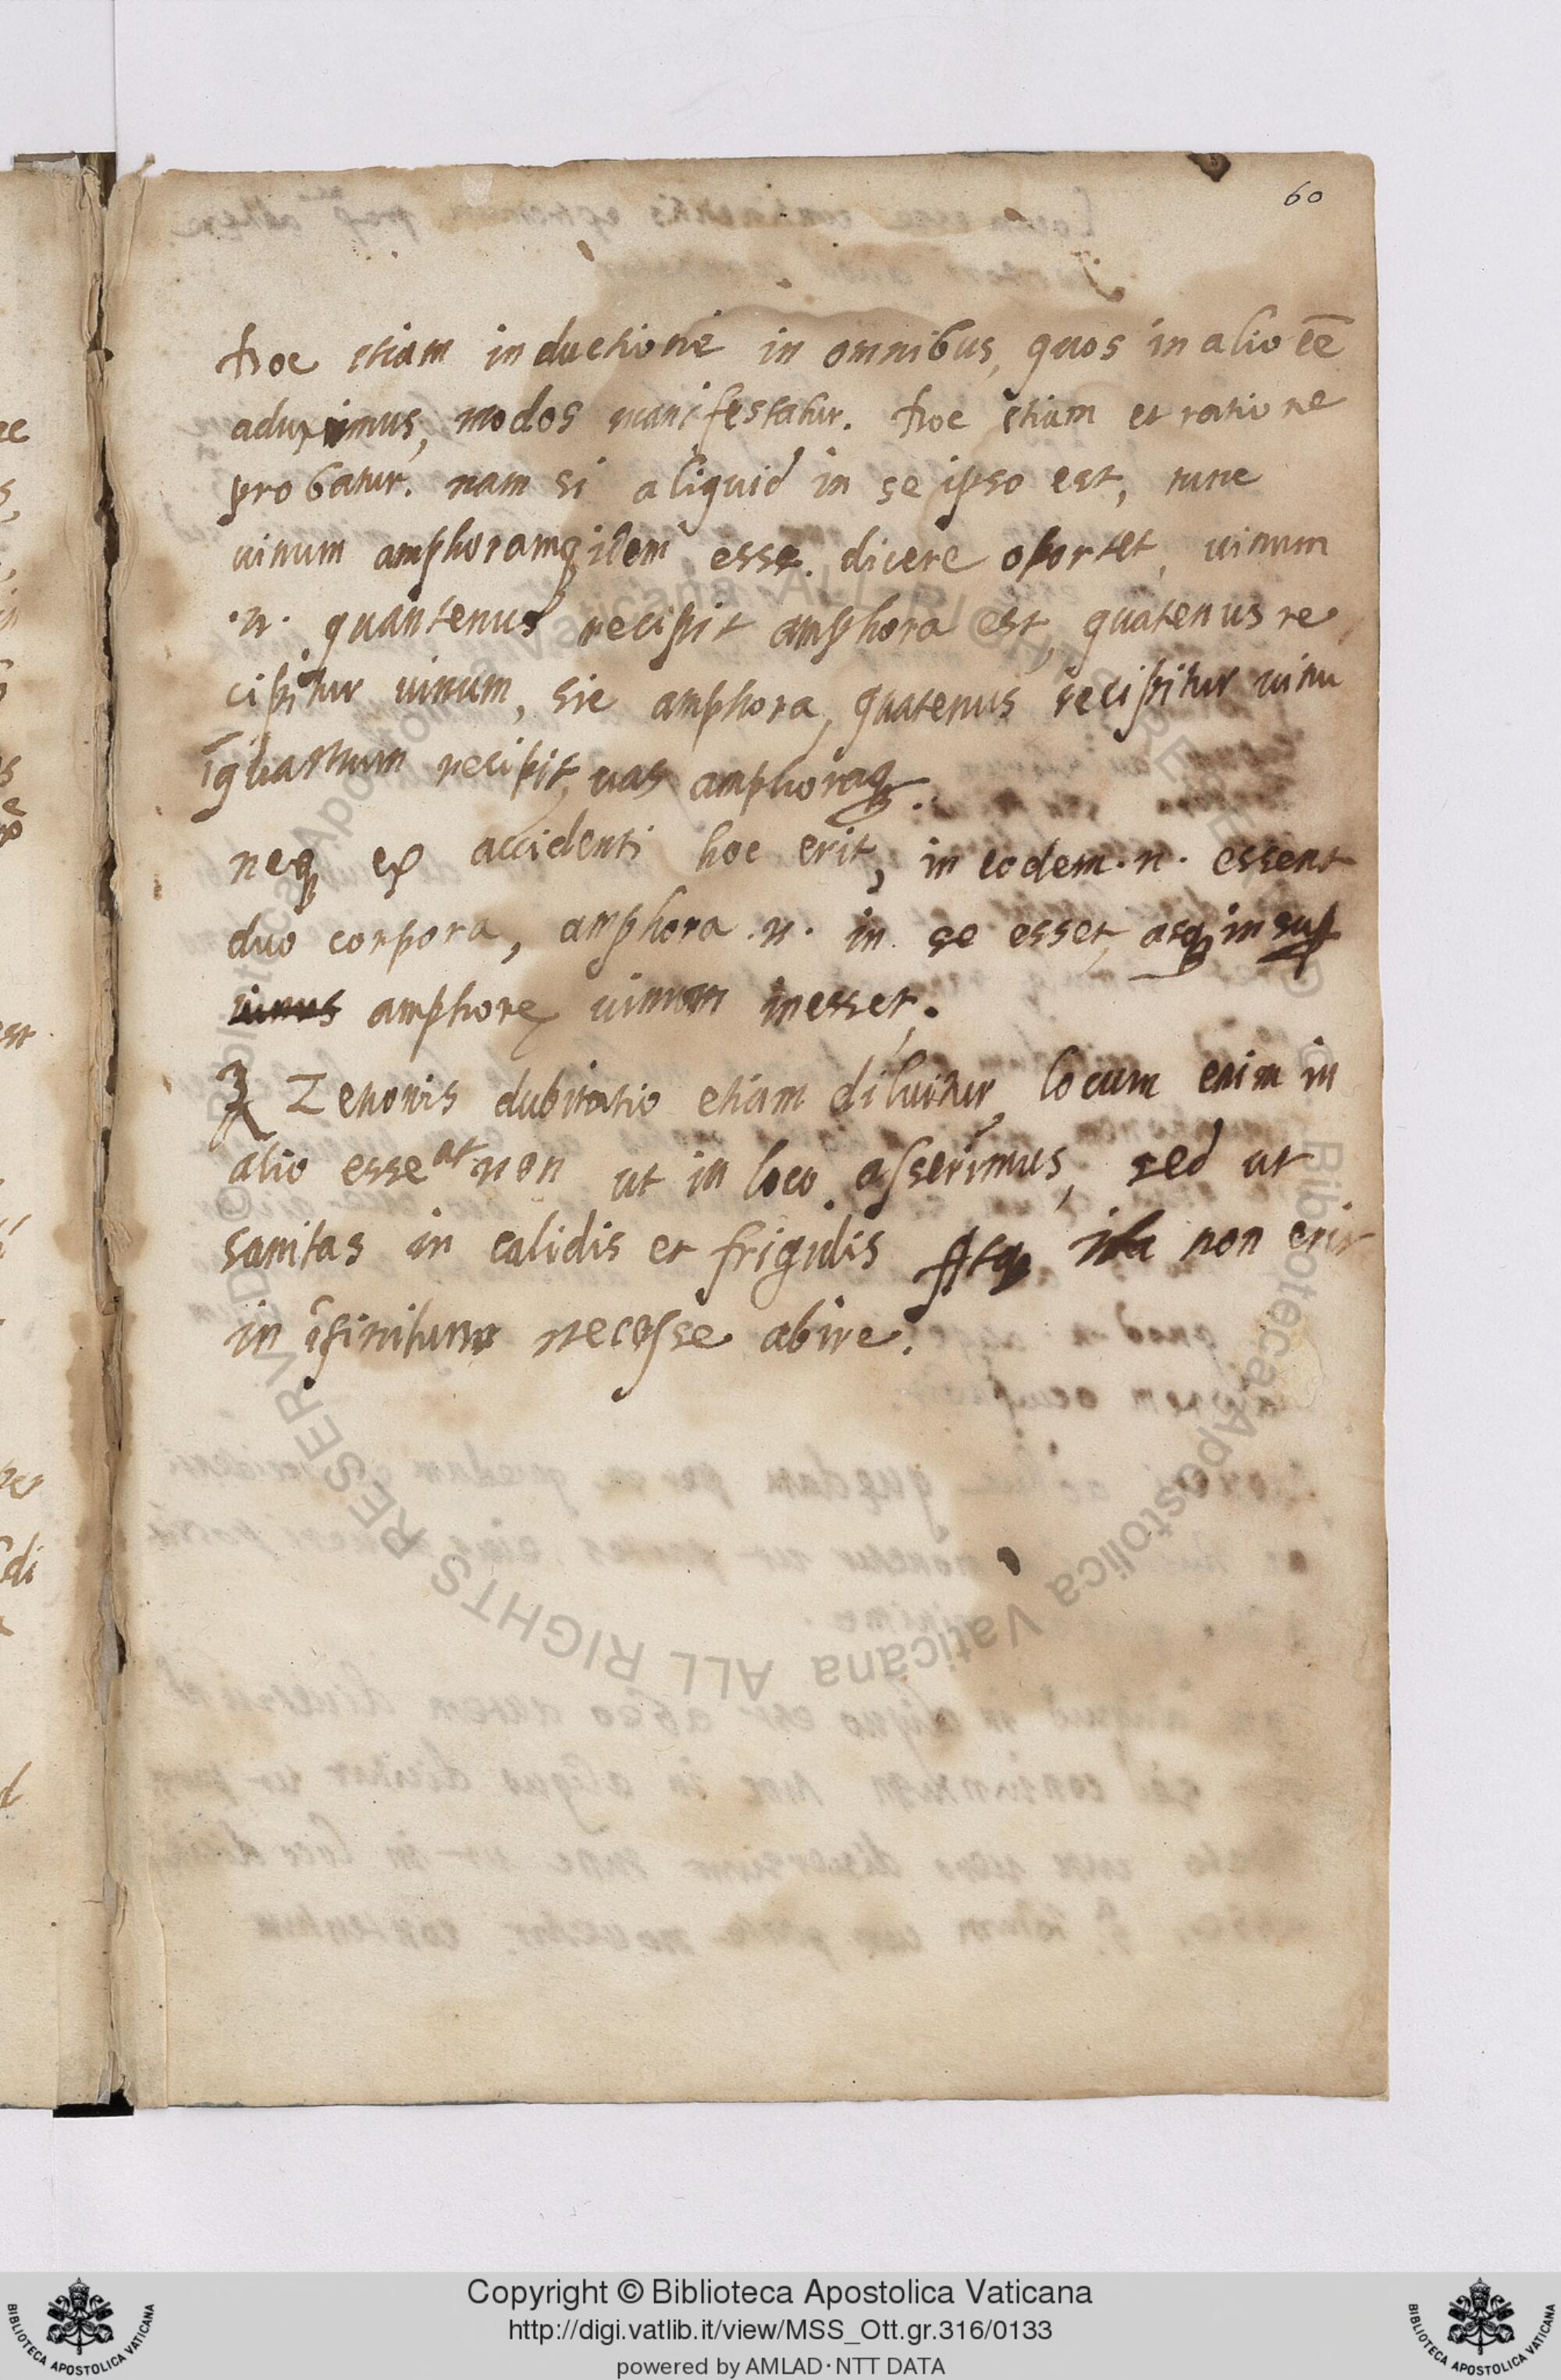 60
hoc etiam inductione in omnibus, quos in alio eē
aduximus, modos manifestatur. hoc etiam et ratione
probatur. nam si aliquid in se ipso est, tunc
uinum amphoramq idem esse dicere oportet, uinum
.n. quantenus recipit amphora est, quatenus re
cipitur uinum, sic amphora, quatenus recipitur uinū
īquantum recipit, uas amphoraq.
neq ex accidenti hoc erit, in eodem .n. essent
duo corpora, amphora .n. in se esset, atq insup
amphorę uinum inesset.
Zenonis dubitatio etiam diluitur, locum enim in
alio esse at non ut in loco asserimus, sed ut
sanitas in calidis et frigidis Atq ita non erit
in īfinitum necesse abire.
Copyright © Biblioteca Apostolica Vaticana
http://digi.vatlib.it/view/MSS_Ott.gr.316/0133
powered by AMLAD·NTT DATA
BIBLIOTECA APOSTOLICA VATICANA
BIBLIOTECA APOSTOLICA VATICANA